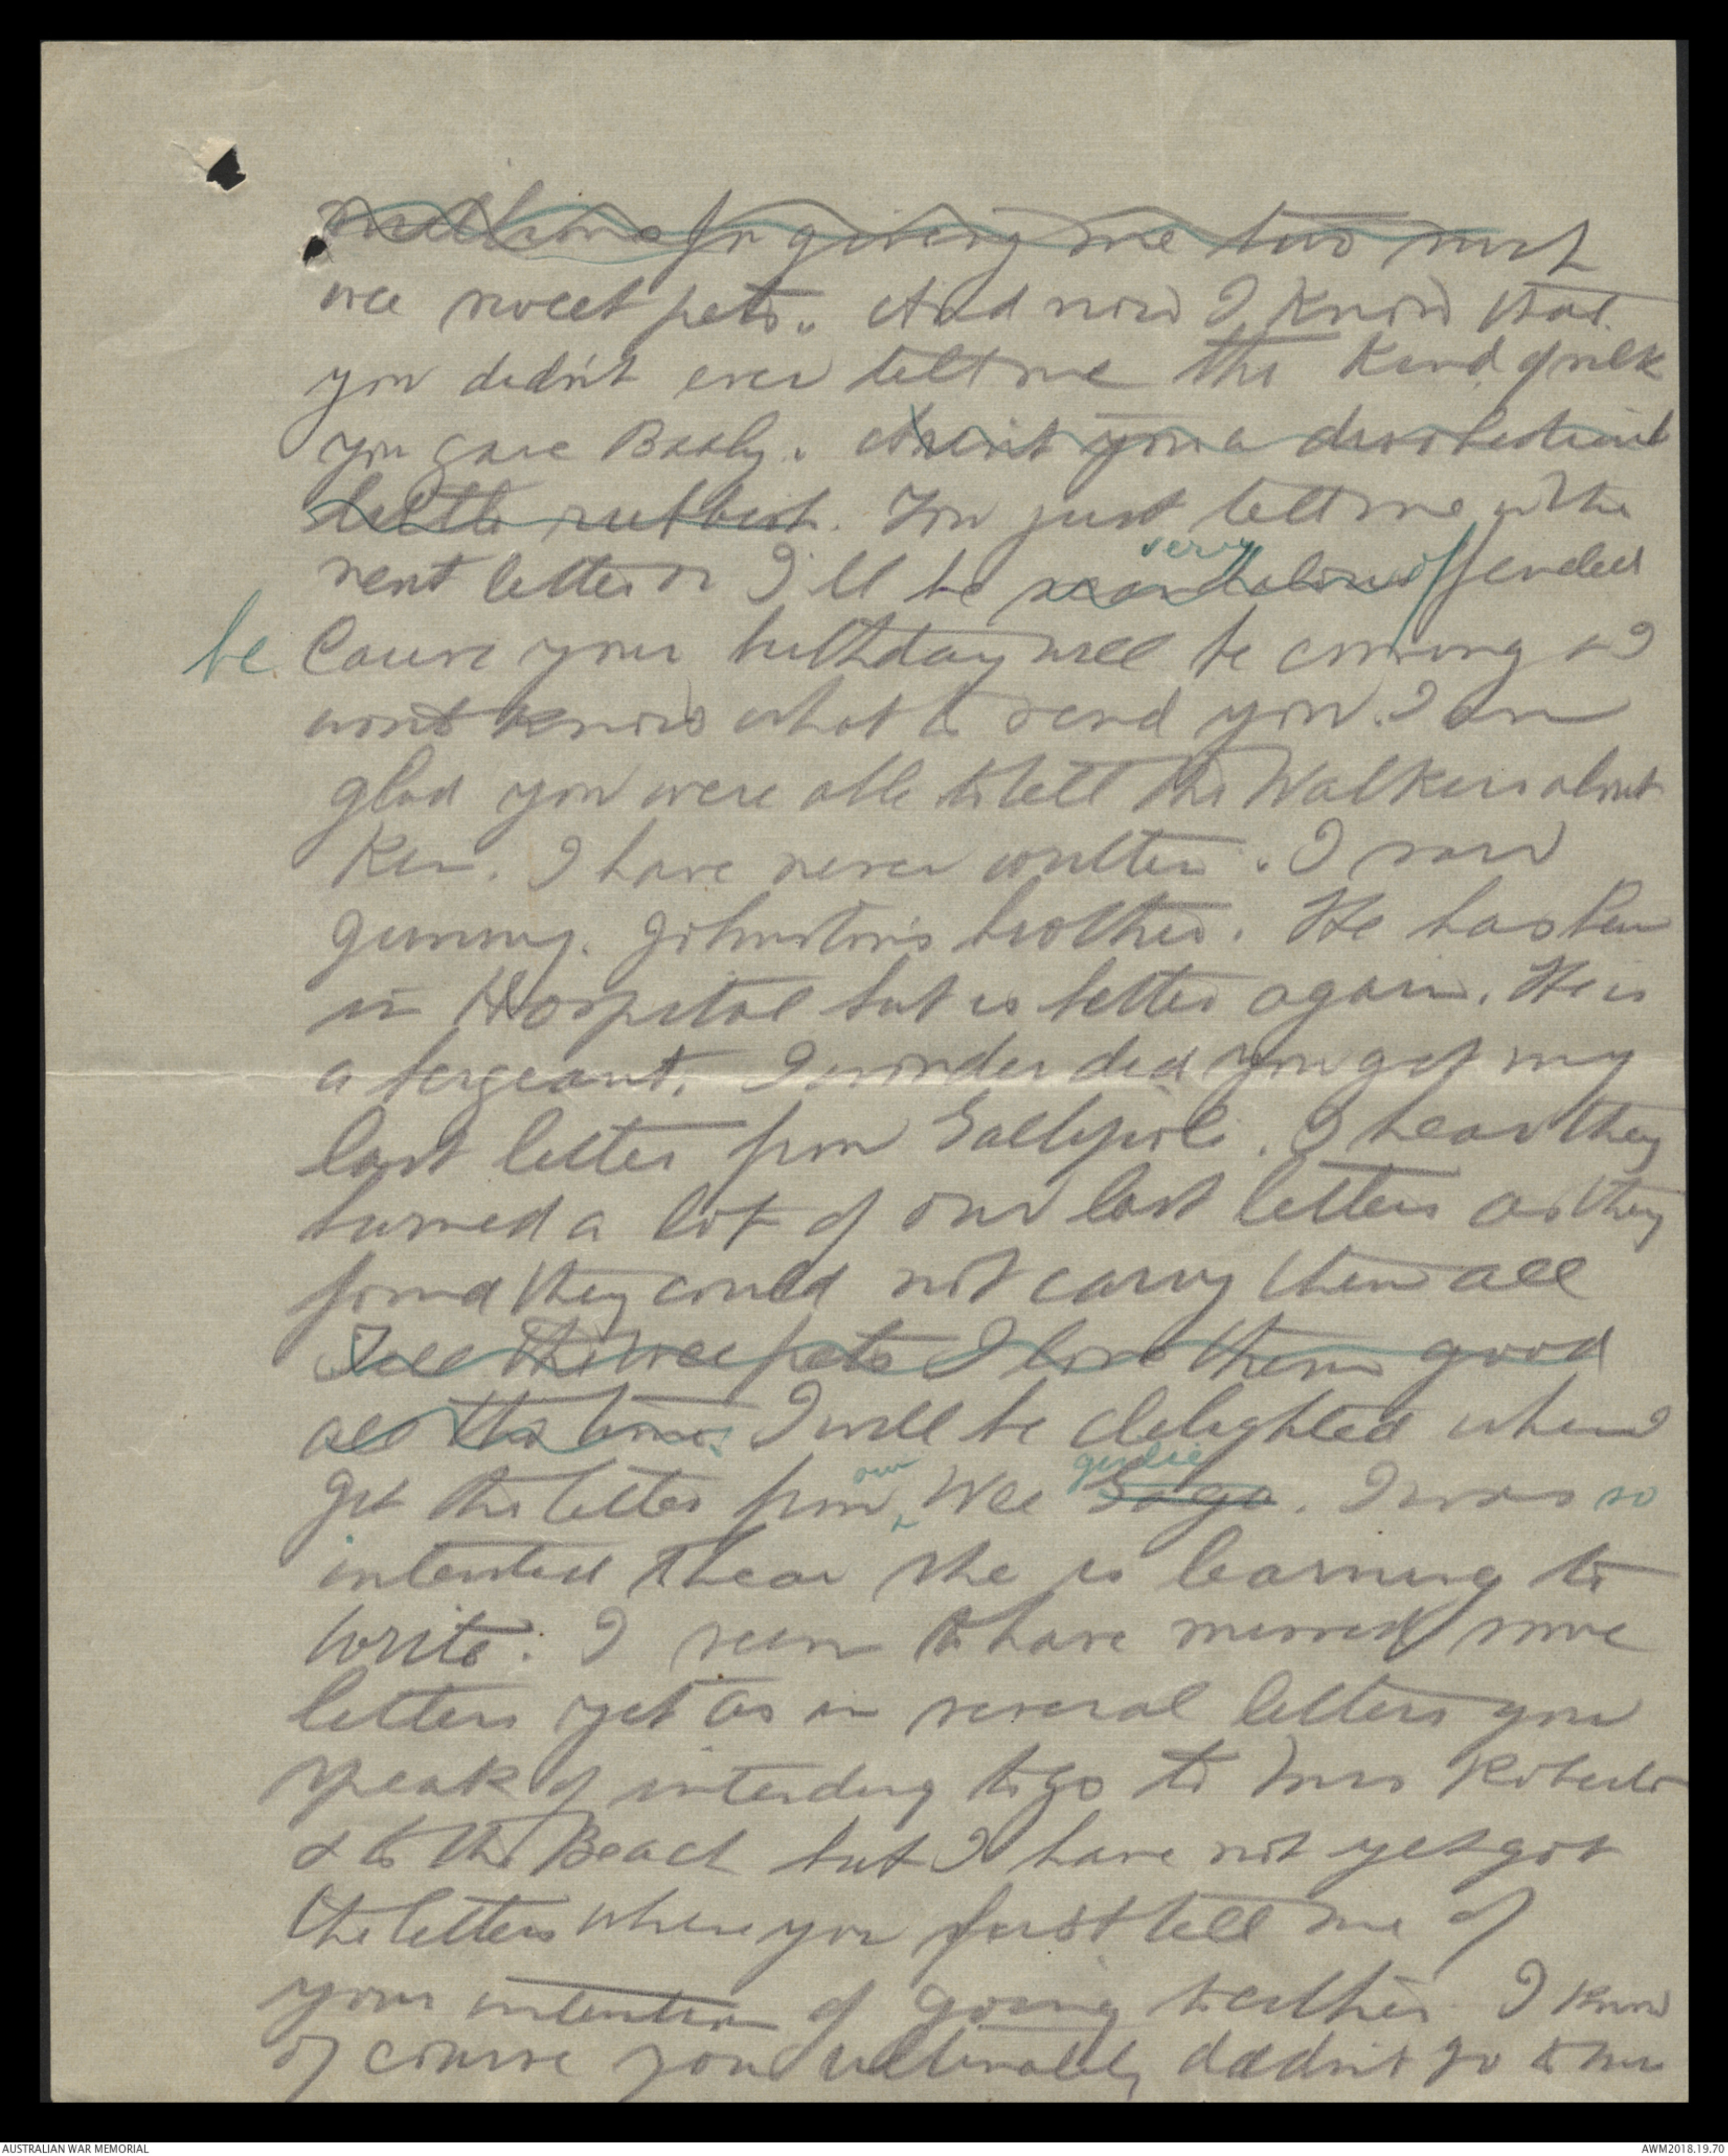 millions for giving me two such
wee sweet pets. And now I know that
you didn't ever tell me the kind of milk
you gave Baaby. Arent you a
little rubbish. You just tell me in the
very
next letter or I'll be offended
be Cause your birthday will be coming & I
wont know what to send you. I am
glad you were able to tell the Walkers about
Ken. I have never written. I saw
Gunny. Johnston's brother. He has been
in Hospital but is better again. He is
a Sergeant. I wonder did you get my
last letter from Gallipoli. I hear they
burned a lot of our last letters as they
found they could not carry them all
Tell the wee pets I love them good
all the time. I will be delighted when I
our girlie
get the letter from Wee Gaga. I was so
interested to hear she is learning to
write. I seem to have missed some
letters yet as in several letters you
speak of intending to go to Mrs Roberts
& to the Beach but I have not yet got
the letters where you first tell me of
your intention of going to either I know
of course you ultimately didn't go to Mrs
AUSTRALIAN WAR MEMORIAL
AWM2018.19.70